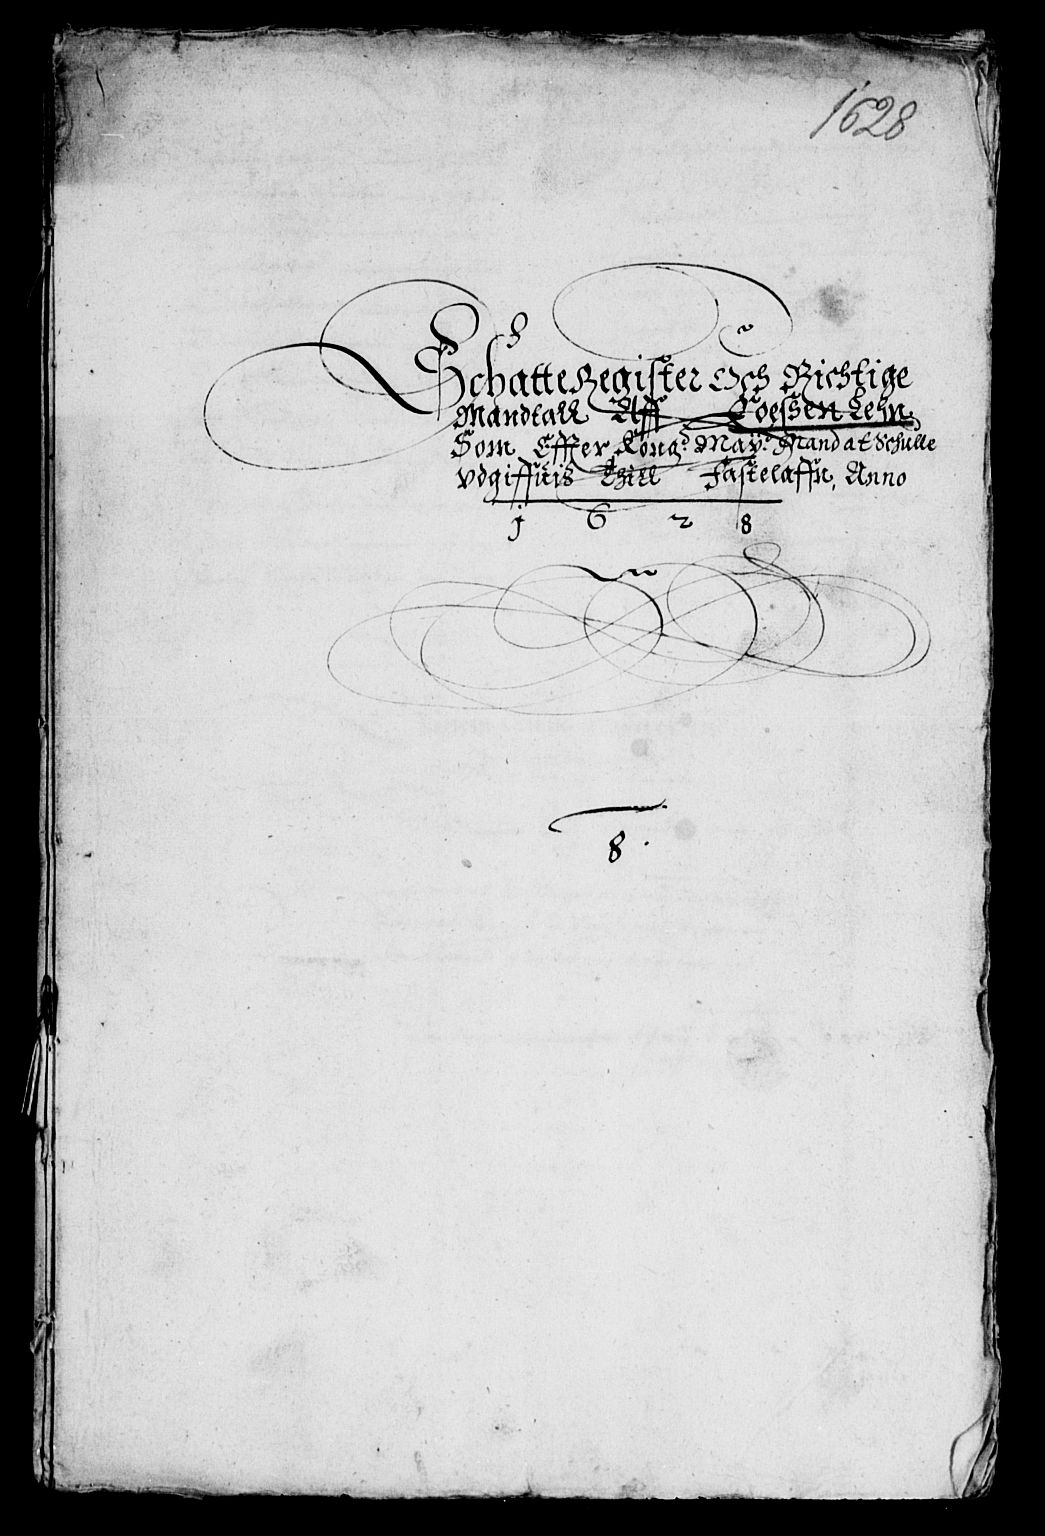 1628
Schatte Register Och Richtige
Mandtall Aff Toessen Lehn
Som Effter Kong: May: Mandat Schulle
vdgiffuis thill Fastelaffn, Anno
1 6 2 8
8